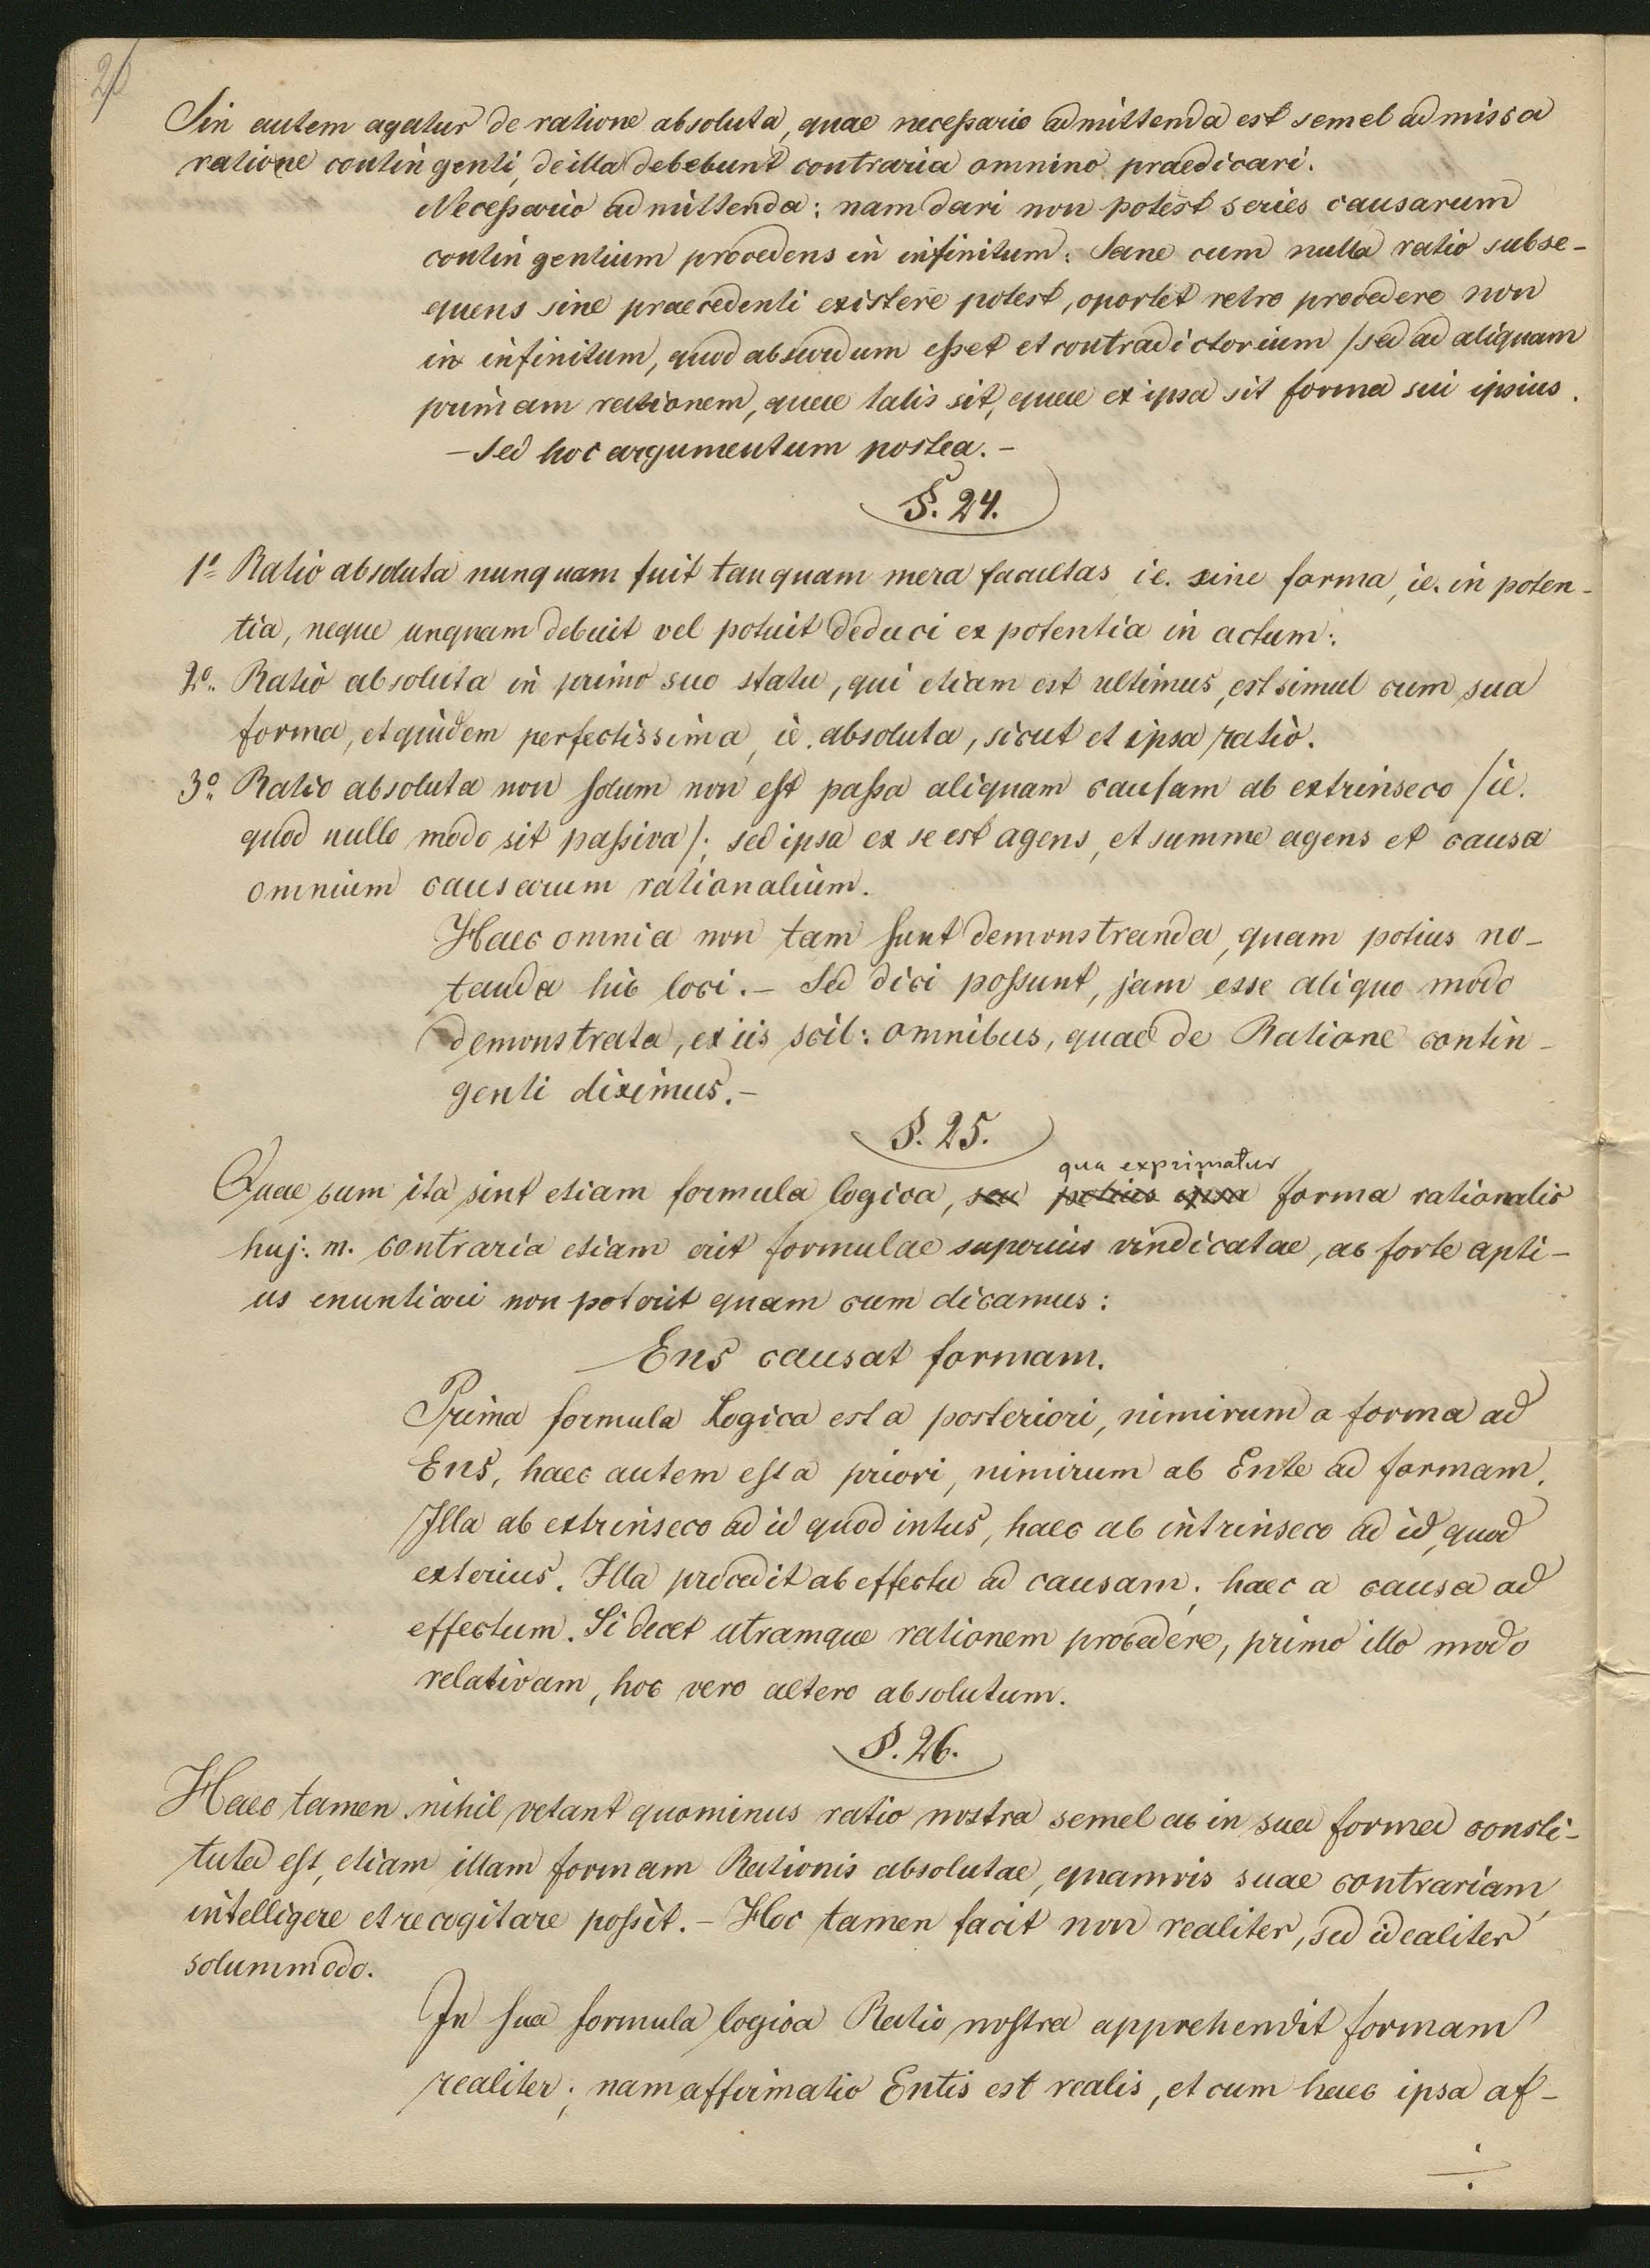 20
Sin autem agatur de ratione absoluta, quae necessario admittenda est semel admissa
ratione contingenti, de illa debebunt contraria omnino praedicari.
Necessario admittenda: nam dari non potest series causarum
contingentium procedens in infinitum: Sane cum nulla ratio subse-
quens sine praecedenti existere potest, oportet retro procedere non
in infinitum, quod absurdum esset et contradictorium / sed ad aliquam
primam rationem, quae talis sit, quae ex ipsa sit forma sui ipsius.
- Sed hoc argumentum postea. -
§. 24.
1º Ratio absoluta nunquam fuit tanquam mera facultas ie. sine forma, ie. in poten-
tia, neque unquam debuit vel potuit deduci ex potentia in actum:
2º. Ratio absoluta in primo suo statu, qui etiam est ultimus, est simul cum sua
forma, et quidem perfectissima, ie. absoluta, sicut et ipsa ratio.
3º. Ratio absoluta non solum non est passa aliquam causam ab extrinseco /ie.
quod nullo modo sit passiva/; sed ipsa ex se est agens, et summe agens et causa
omnium causarum rationalium.
Haec omnia non tam sunt demonstranda, quam potius no-
tanda hic loci. - Sed dici possunt, jam esse aliquo modo
demonstrata, ex iis scil: omnibus, quae de Ratione contin-
genti diximus. -
§. 25.
qua exprimatur
Quae cum ita sint etiam formula logica, seu potius ipsa forma rationalis
huj: m. contraria etiam erit formulae superius vindicatae, ac forte apti-
us enuntiari non poterit quam cum dicamus:
Ens causat formam.
Prima formula Logica est a posteriori, nimirum a forma ad
Ens, haec autem est a priori, nimirum ab Ente ad formam.
Illa ab extrinseco ad id quod intus, haec ab intrinseco ad id, quod
exterius. Illa procedit ab effectu ad causam; haec a causa ad
effectum. Si decet utramque rationem procedere, primo illo modo
relativam, hoc vero altero absolutum.
§. 26.
Haec tamen nihil vetant quominus ratio nostra semel ac in sua forma consti-
tuta est, etiam illam formam Rationis absolutae, quamvis suae contrariam,
intelligere et recogitare possit. - Hoc tamen facit non realiter, sed idealiter
solummodo.
In sua formula logica Ratio nostra apprehendit formam
realiter; nam affirmatio Entis est realis, et cum haec ipsa af-
÷